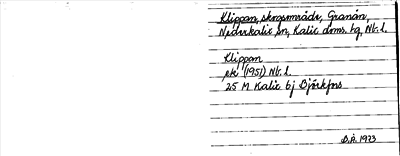 Klippan, skogsområde, Granån,
Nederkalix sn, Kalix dms. tg, Nb. l.
Klippan
ek (1951) Nb. l.
25 M Kalix bj Björkfors
B.Å. 1973